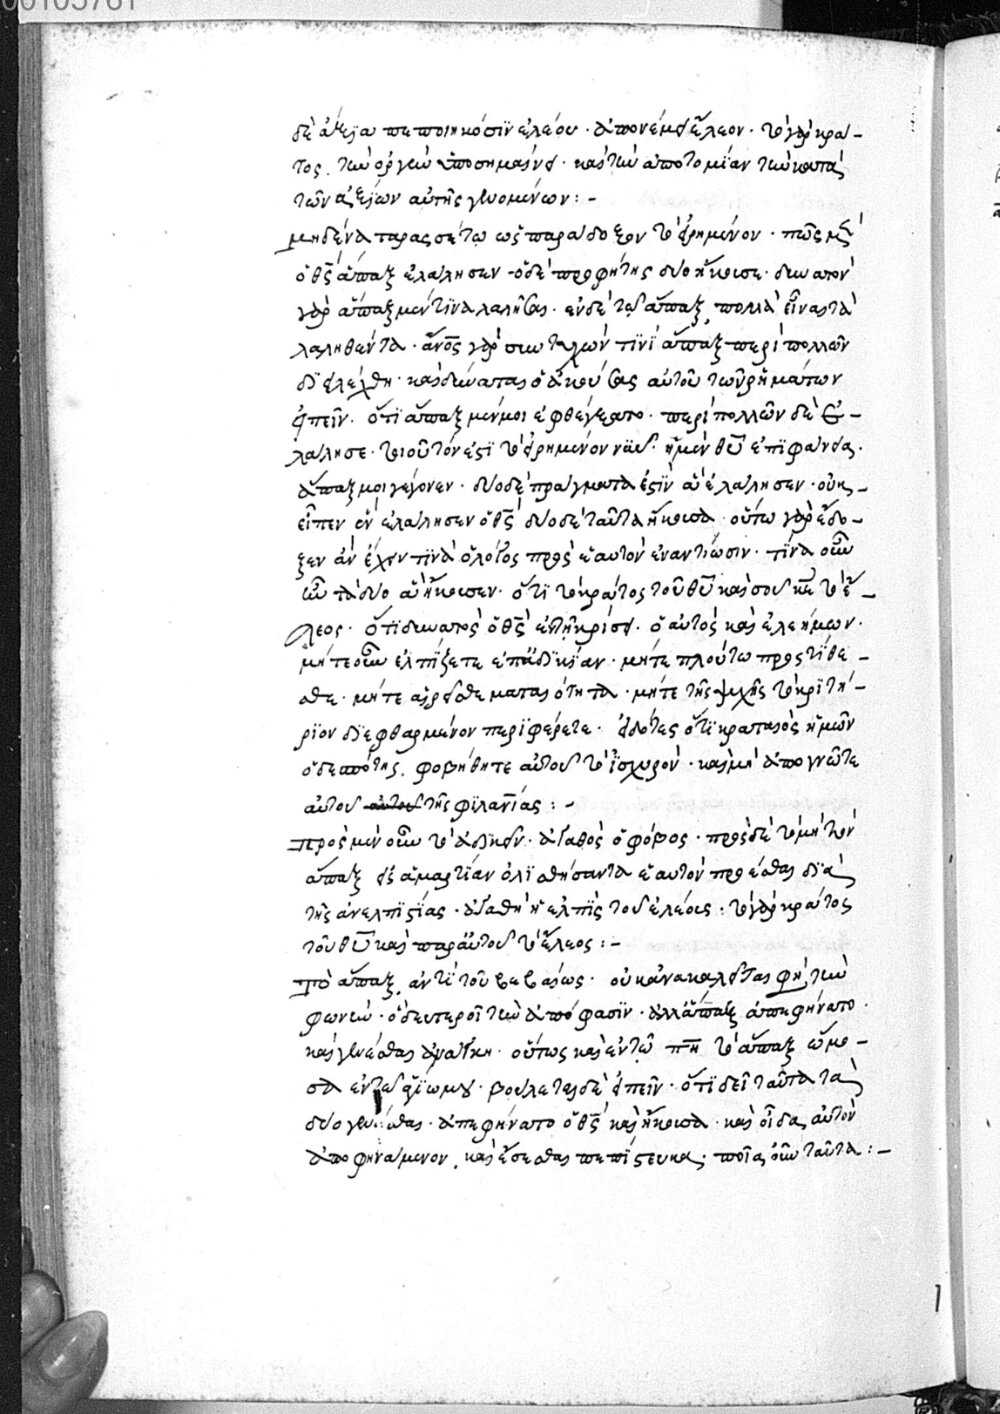 00105761
δὲ ἄξια πεποιηκόσιν ἐλέου· ἀπονέμει ἔλεον· τὸ γὰρ κρά-
τος, τὴν ὀργὴν ὑποσημαίνει· καὶ τὴν ἀποτομίαν τὴν κατὰ
τῶν ἀξίων αὐτῆς γινομένων:-
μηδένα ταρασσέτω ὡς παράδοξον τὸ εἰρημένον· πῶς
ὁ θς ἅπαξ ἐλάλησεν· ὁ δὲ προφήτης δύο ἤκουσε· δυνατὸν
γὰρ ἅπαξ μέν τινα λαλῆσαι· ἐν δὲ τῶ ἅπαξ, πολλὰ εἶναι τὰ
λαληθέντα· ἄνος γὰρ συντυχών τινι ἅπαξ περὶ πολλῶν
διελέχθη· καὶ δύναται ὁ ἀκούσας αὐτοῦ τῶν ῥημάτων
εἰπεῖν· ὅτι ἅπαξ μέν μοι ἐφθέγξατο· περὶ πολλῶν δὲ ἐ-
λάλησε· τοιοῦτόν ἐστι τὸ εἰρημένον νῦν· ἡ μὲν θυ ἐπιφάνεια·
ἅπαξ μοι γέγονεν· δύο δὲ πράγματα ἐστὶν ἃ ἐλάλησεν· οὐκ-
εἶπεν ἓν ἐλάλησεν ὁ θς δύο δὲ ταῦτα ἤκουσα· οὕτω γὰρ ἔδο-
ξεν ἂν ἔχειν τινὰ ὁ λόγος πρὸς ἑαυτὸν ἐναντίωσιν· τίνα οὖν
ἦν τὰ δύο ἃ ἤκουσεν· ὅτι τὸ κράτος τοῦ θυ καὶ σοῦ κε τὸ ἔ-
λεος· ὅτι δυνατὸς ὁ θς ἐν τῆ κρίσει· ὁ αὐτὸς καὶ ἐλεήμων·
μήτε οὖν ἐλπίζετε ἐπ' ἀδικίαν· μήτε πλούτω προστίθε-
σθε· μήτε αἱρεῖσθε ματαιότητα· μήτε τῆς ψυχῆς τὸ κριτή-
ριον διεφθαρμένον περιφέρετε· εἰδότες ὅτι κραταιὸς ἡμῶν
ὁ δεσπότης, φοβήθητε αὐτοῦ τὸ ἰσχυρόν· καὶ μὴ ἀπογνῶτε
αὐτοῦ αὐτοῦ τῆς φιλανίας:-
πρὸς μὲν οὖν τὸ ἀδικεῖν· ἀγαθὸς ὁ φόβος· πρὸς δὲ τὸ μὴ τὸν
ἅπαξ ἐξ ἁμαρτίαν ὀλισθήσαντα ἑαυτὸν προέσθαι διὰ
τῆς ἀνελπιστίας· ἀγαθὴ ἡ ἐλπὶς τοῦ ἐλέους· τὸ γὰρ κράτος
τοῦ θυ καὶ παρ' αὐτοῦ τὸ ἔλεος:-
Τὸ ἅπαξ, ἀντὶ τοῦ βεβαίως· οὐκ ἀνακαλεῖται φησὶ τὴν
φωνήν· ὁ δευτεροῖ τὴν ἀπόφασιν· ἀλλ' ἅπαξ ἀπεφήνατο·
καὶ γενέσθαι ἀνάγκη· οὕτως καὶ ἐν τῶ πη τὸ ἅπαξ ὤμο-
σα ἐν τῶ ἁγίω μου· βούλεται δὲ εἰπεῖν· ὅτι δεῖ ταῦτα τὰ
δύο γενέσθαι· ἀπεφήνατο ὁ θς καὶ ἤκουσα· καὶ οἶδα αὐτὸν
ἀποφηνάμενον, καὶ ἔσεσθαι πεπίστευκα· ποῖα οὖν ταῦτα:-